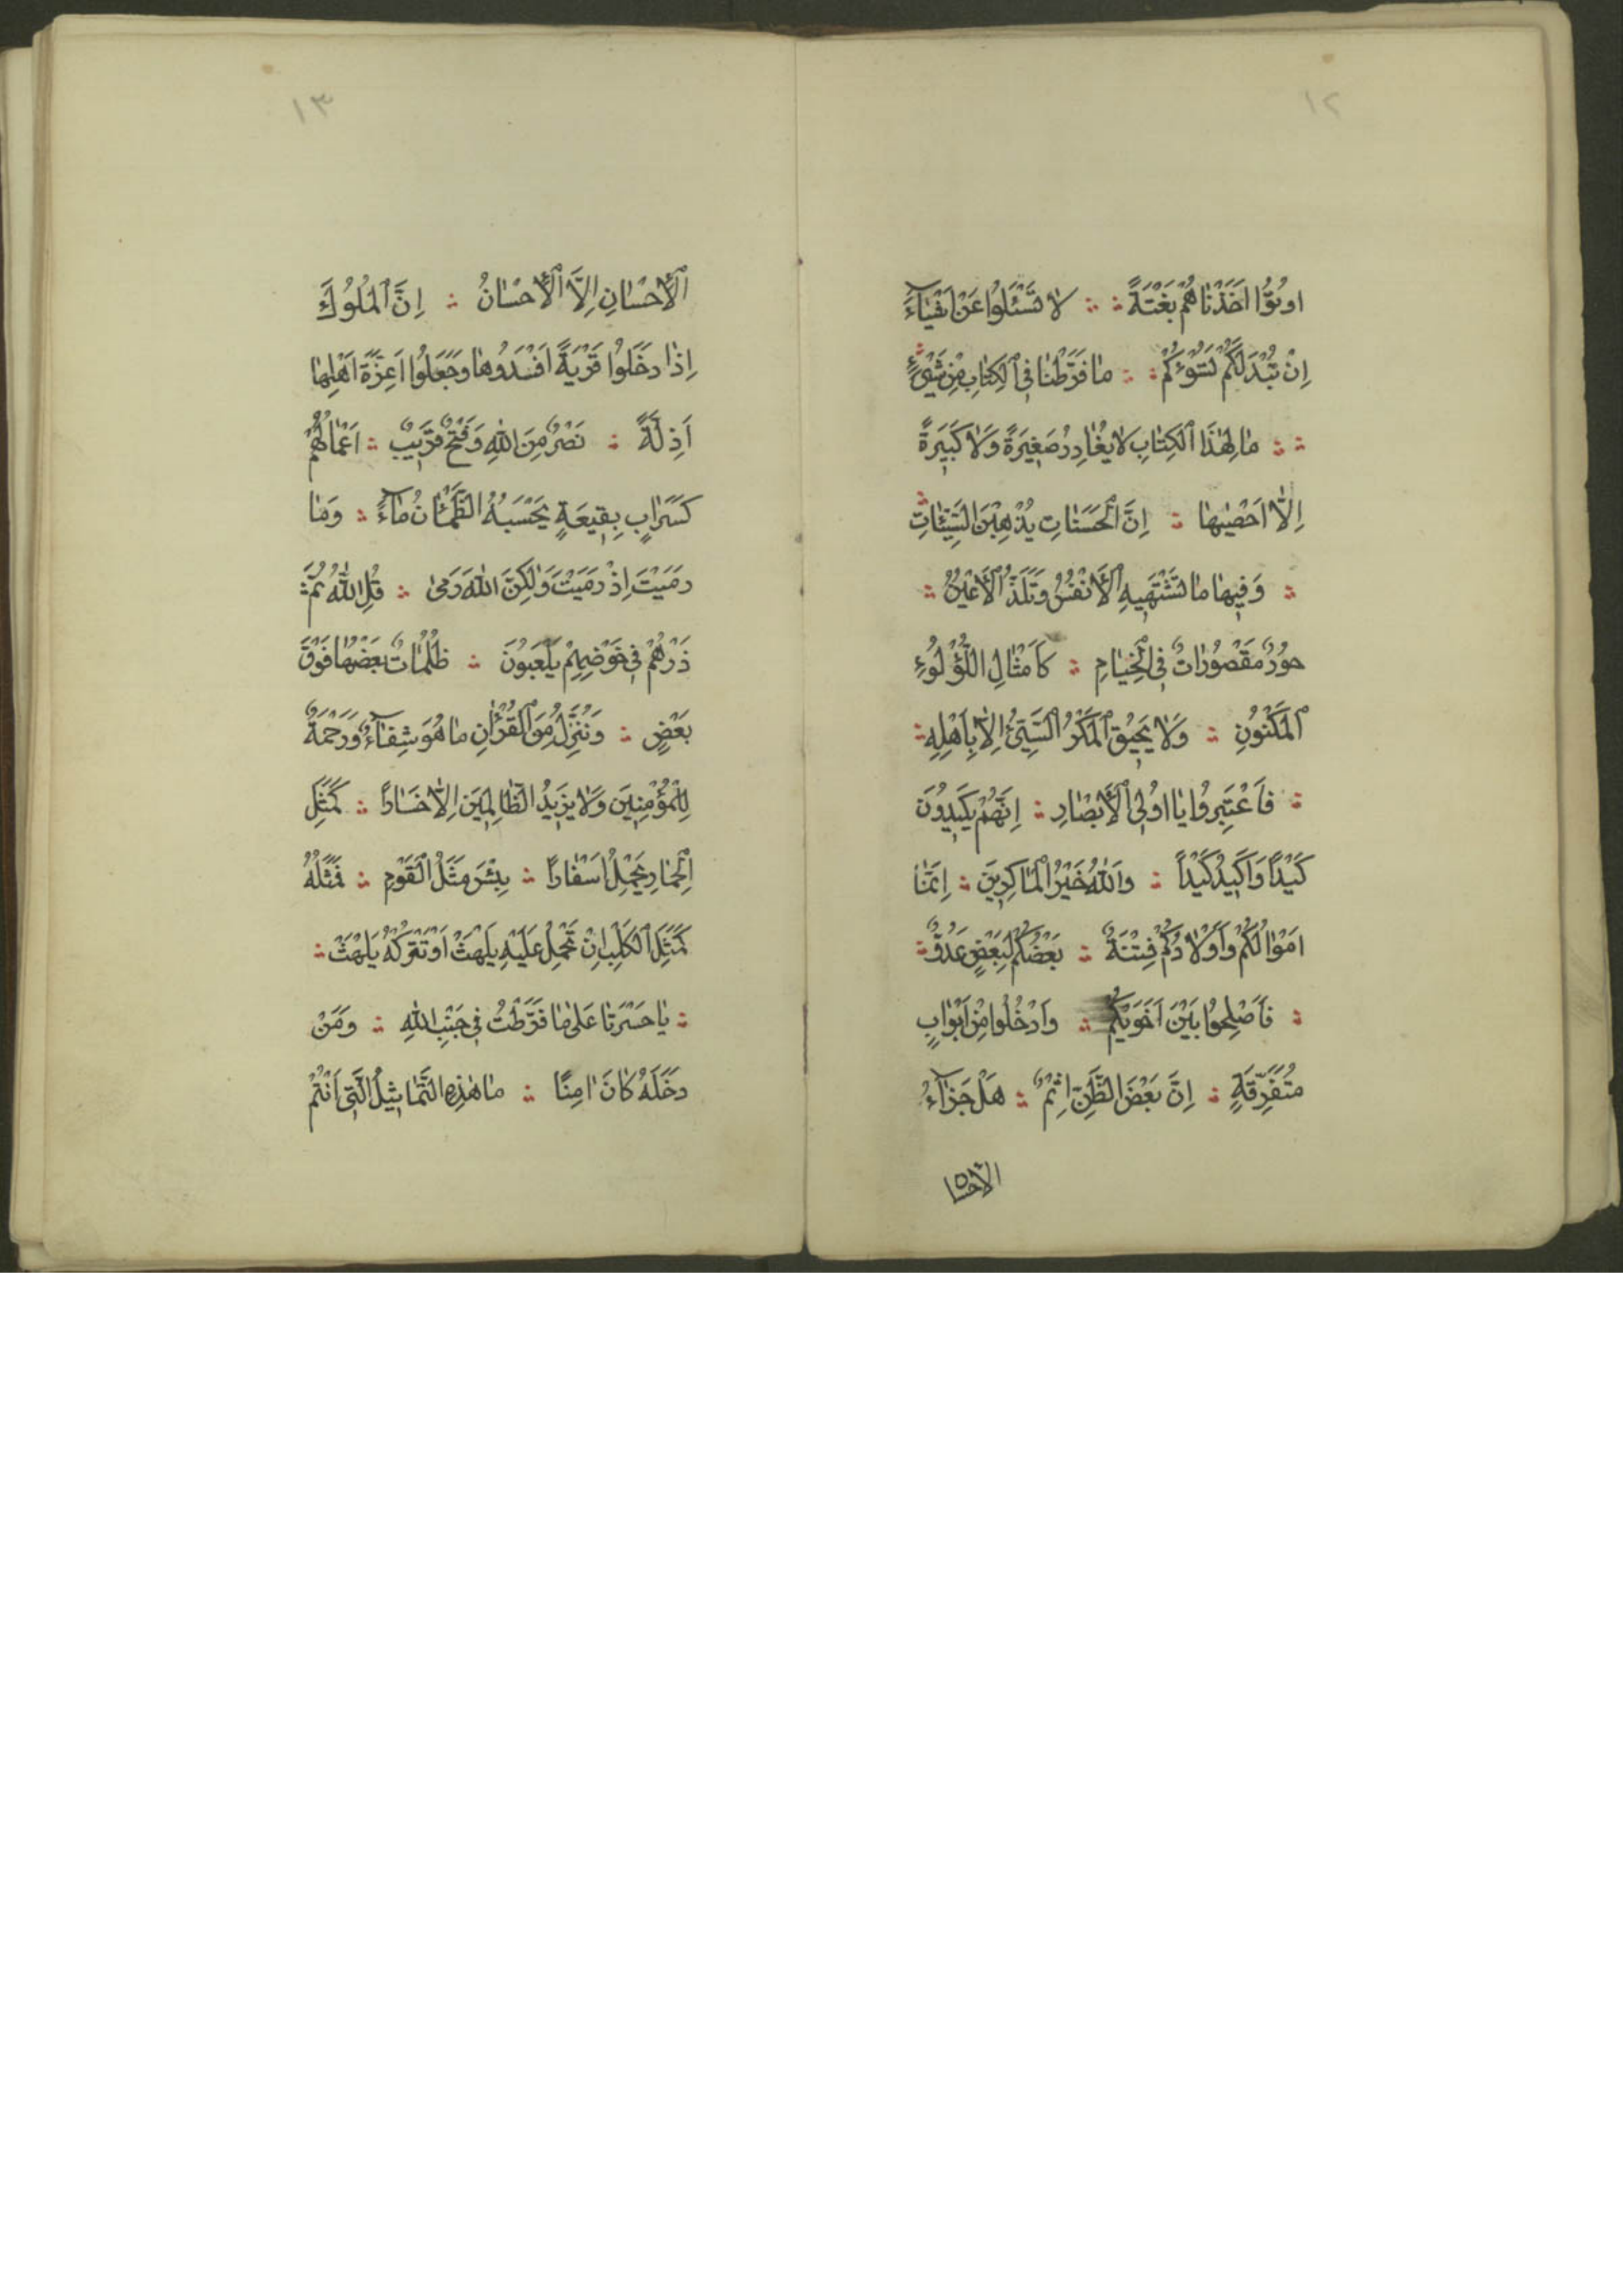 ١٢
اوُتُوُّا اَخَذْنَاهُمْ بَغْتَةً ؞ ؞ لَا تَسْئَلُوا عَنْ اَشْيَآءَ
اِنْ تُبْدَ لَكُمْ تَسُؤْكُمْ ؞ ؞ مَا فَرَّطْنَا فِي الْكِتَابِ مِنْ شَيْءٍ
؞ ؞ مَا لِهٰذَا الْكِتَابِ لَا يُغَادِرُ صَغِيرَةً وَلَا كَبِيرَةً
اِلَّا اَحْصٰيهَا ؞ اِنَّ الْحَسَنَاتِ يُذْهِبْنَ السَّيِّئَاتِ
؞ وَفِيهَا مَا تَشْتَهِيهِ الْاَنْفُسُ وَتَلَذُّ الْاَعْيُنُ ؞
حُورٌ مَقْصُورَاتٌ فِي الْخِيَامِ ؞ كَاَمْثَالِ اللُّؤْلُوءِ
الْمَكْنُونِ ؞ وَلَا يَحِيقُ الْمَكْرُ السَّيِّئُ اِلَّا بِاَهْلِهِ ؞
؞ فَاعْتَبِرُوا يَا اوُلِي الْاَبْصَارِ ؞ اِنَّهُمْ يَكِيدُونَ
كَيْدًا وَاَكِيدُ كَيْدًا ؞ وَاللّٰهُ خَيْرُ الْمَاكِرِينَ ؞ اِنَّمَا
اَمْوَالُكُمْ وَاَوْلَادُكُمْ فِتْنَةٌ ؞ بَعْضُكُمْ لِبَعْضٍ عَدُوٌّ ؞
؞ فَاَصْلِحُوا بَيْنَ اَخَوَيْكُمْ ؞ وَادْخُلُوا مِنْ اَبْوَابٍ
مُتَفَرِّقَةٍ ؞ اِنَّ بَعْضَ الظَّنِّ اِثْمٌ ؞ هَلْ جَزَآءُ
الاحسان
١٣
الْاِحْسَانِ اِلَّا الْاِحْسَانُ ؞ اِنَّ الْمُلُوكَ
اِذَا دَخَلُوا قَرْيَةً اَفْسَدُوهَا وَجَعَلُوا اَعِزَّةَ اَهْلِهَا
اَذِلَّةً ؞ نَصْرٌ مِنَ اللّٰهِ وَفَتْحٌ قَرِيبٌ ؞ اَعْمَالُهُمْ
كَسَرَابٍ بِقِيعَةٍ يَحْسَبُهُ الظَّمْئَانُ مَآءً ؞ وَمَا
رَمَيْتَ اِذْ رَمَيْتَ وَلٰكِنَّ اللّٰهَ رَمٰى ؞ قُلِ اللّٰهُ ثُمَّ ؞
ذَرْهُمْ فِي خَوْضِهِمْ يَلْعَبُونَ ؞ ظُلُمَاتٌ بَعْضُهَا فَوْقَ
بَعْضٍ ؞ وَنُنَزِّلُ مِنَ الْقُرْاٰنِ مَا هُوَ شِفَآءٌ وَرَحْمَةٌ
لِلْمُؤْمِنِينَ وَلَا يَزِيدُ الظَّالِمِينَ اِلَّا خَسَارًا ؞ كَمَثَلِ
الْحِمَارِ يَحْمِلُ اَسْفَارًا ؞ بِئْسَ مَثَلُ الْقَوْمِ ؞ فَمَثَلُهُ
كَمَثَلِ الْكَلْبِ اِنْ تَحْمِلْ عَلَيْهِ يَلْهَثْ اَوْ تَتْرُكْهُ يَلْهَثْ ؞
؞ يَا حَسْرَتَا عَلٰى مَا فَرَّطْتُ فِي جَنْبِ اللّٰهِ ؞ وَمَنْ
دَخَلَهُ كَانَ اٰمِنًا ؞ مَا هٰذِهِ التَّمَاثِيلُ الَّتِي اَنْتُمْ